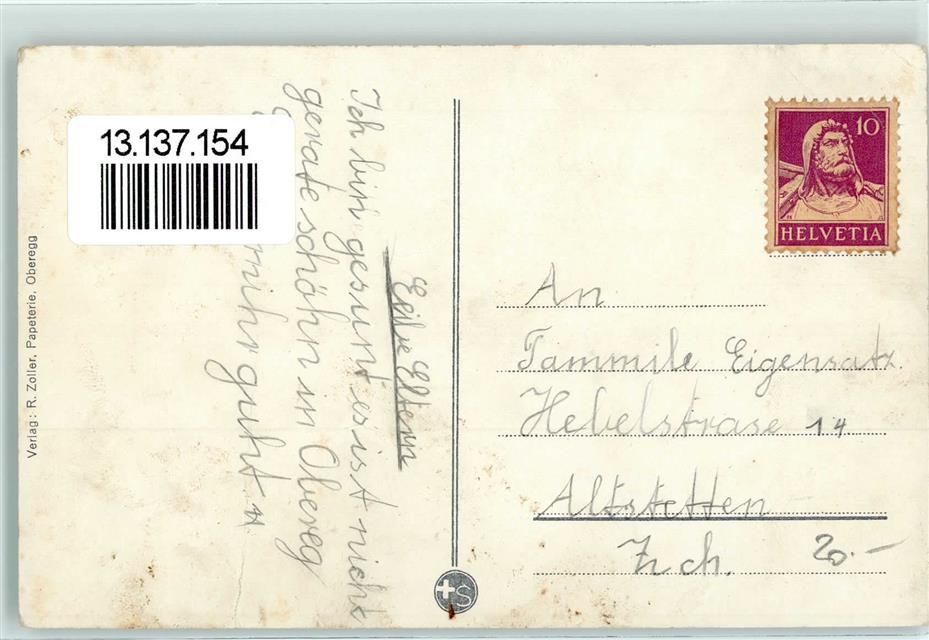 13.137.154
Verlag: R. Zoller, Papeterie, Oberegg
Leibe Eltern
Ich bin gesunt es ist nicht
gerate schöhn in Obereg
mihr guht
10
HELVETIA
An
Fammile Eigensatz
Hebelstrase 14
Altstetten
Zch.
20.-
S